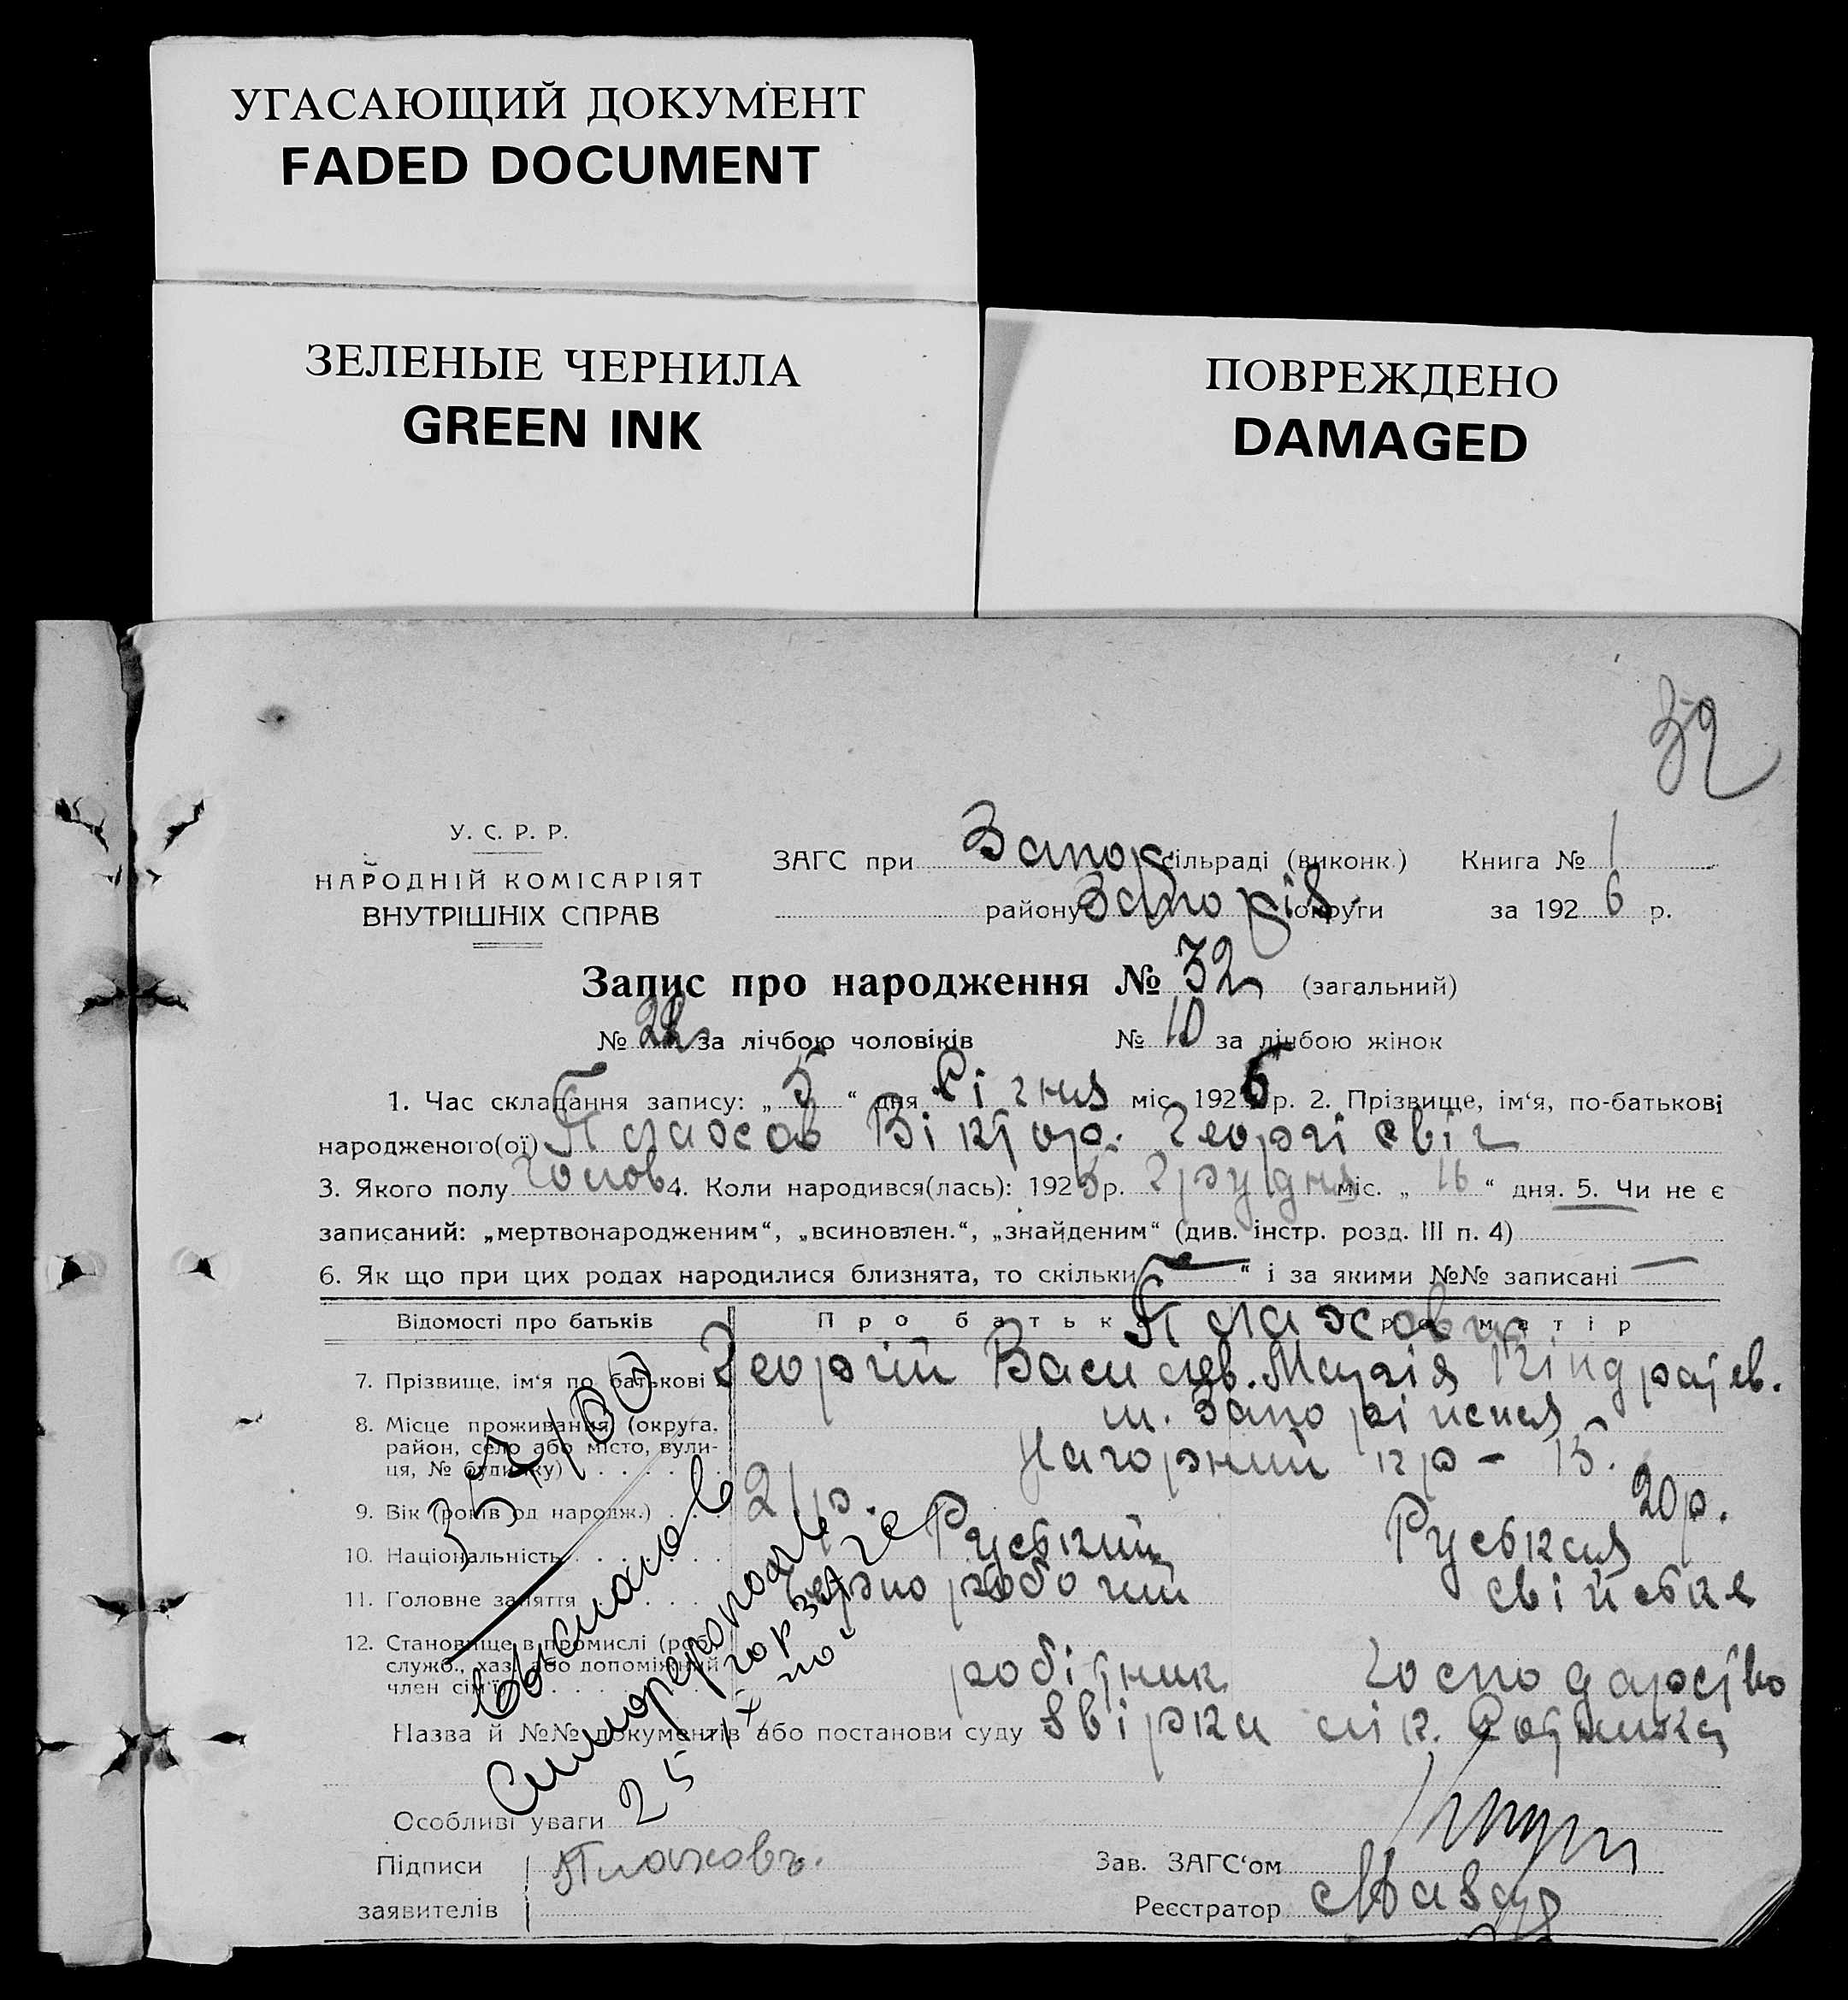 УГАСАЮЩИЙ ДОКУМЕНТ
FADED DOCUMENT
ЗЕЛЕНЫЕ ЧЕРНИЛА
GREEN INK
ПОВРЕЖДЕНО
DAMAGED
32
У. С. Р. Р.
НАРОДНІЙ КОМІСАРІЯТ
ВНУТРІШНІХ СПРАВ
ЗАГС при Запор сільраді (виконк.) Книга № 1
району Запоріз. округи за 1926 р.
Запис про народження № 32 (загальний)
№ 22 за лічбою чоловіків № 10 за лічбою жінок
1. Час складання запису: „5“ дня Січня міс. 1926 р. 2. Прізвище, ім‘я, по-батькові
народженого(ої) Плахов Віктор Георгієвіч
3. Якого полу чолов 4. Коли народився(лась): 1925 р. Грудня міс. „16“ дня. 5. Чи не є
записаний: „мертвонародженим“, „всиновлен.“, „знайденим“ (див. інстр. розд. III п. 4)
6. Як що при цих родах народилися близнята, то скільки — “ і за якими №№ записані —
Відомості про батьків Про батька Про матір
Плахови
7. Прізвище, ім‘я по батькові Георгій Василев. Марія Кіндратєв.
8. Місце проживання (округа, м. Запоріжжя
район, село або місто, вули-
ця, № будинку) Нагорний пр – 15.
9. Вік (років од народж.) 21 р. 20 р.
10. Національність Руський Руськая
11. Головне заняття чорноробочий свійське
12. Становище в промислі (роб.,
служб., хаз. або допоміжний робітник господарство
член сім‘ї)
Назва й №№ документів або постанови суду
Особливі уваги
Підписи Плаховъ. Зав. ЗАГС‘ом
заявителів Реєстратор